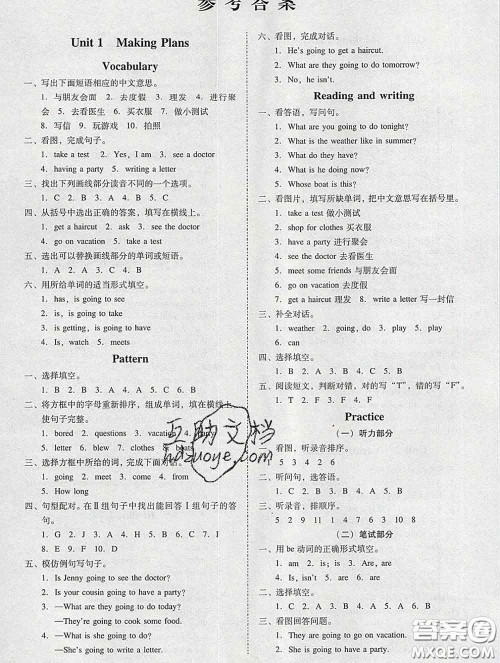 参考答案
Unit 1 Making Plans
Vocabulary
一、写出下面短语相应的中文意思。
1. 与朋友会面 2. 去度假 3. 理发 4. 进行聚
会 5. 去看医生 6. 买衣服 7. 做小测试
8. 写信 9. 玩游戏 10. 拍照
二、看图，完成句子。
1. take a test 2. Yes, I am 3. see a doctor
4. having a party 5. writing a letter
三、找出下列划线部分读音不同的一个选项。
1. B 2. C 3. C 4. B 5. A
四、从括号中选出正确的答案，填写在横线上。
1. get a haircut 2. ask 3. see the doctor
4. go on vacation 5. take a test
五、选出可以替换画线部分的单词或短语。
1. A 2. A 3. C 4. B
六、用所给单词的适当形式填空。
1. has, is going to see
2. is, is going to take
3. is getting, is going to have
4. is, is going to see, meets
Pattern
一、选择填空。
1. B 2. B 3. C 4. A 5. A 6. B
二、将方框中的字母重新排序，组成单词，填在横线上，
使句子完整。
1. bored 2. questions 3. vacation 4. party
5. movie 6. letter 7. clothes 8. boats
三、选择方框中所给的词，完成下面对话。
1. going 2. meet 3. come 4. going to
5. How long
四、句型配对。在Ⅱ组句子中找出能回答Ⅰ组句子的答
句。
1. G 2. J 3. I 4. D 5. C 6. A 7. B
8. E 9. F 10. H
五、模仿例句写句子。
1. Is Jenny going to see the doctor?
2. Is your cousin going to have a party?
3. —What are they going to do today?
—They're going to cook some food.
4. —What is she going to do?
—She's going to writing a letter.
六、看图，完成对话。
1. He's going to get a haircut.
2. What are they going to do tomorrow?
3. No, he isn't.
Reading and writing
一、看答语，写问句。
1. What are you going to do tonight?
2. What is the weather like in summer?
3. What do they have?
4. What is he doing now?
5. Whose boat is this?
二、看图片，填写所缺单词，把中文意思写在括号里。
1. take a test 做小测试
2. shop for clothes 买衣服
3. have a party 进行聚会
4. see the doctor 去看医生
5. meet some friends 与朋友会面
6. go on vacation 去度假
7. get a haircut 理发 8. write a letter 写一封信
三、补全对话。
1. weather 2. going 3. show 4. play 5. play
6. can
四、选择填空。
1. B 2. A 3. A 4. B 5. B
五、阅读短文，判断对错，对的写“T”，错的写“F”。
1. F 2. T 3. F 4. F 5. F
Practice
（一）听力部分
一、看图，听录音排序。
1 5 3 4 2 6
二、听问句，选答语。
1. C 2. A 3. C 4. B 5. C
三、听录音，排顺序。
5 2 9 11 1 4 3 7 6 8 10
（二）笔试部分
一、用 be 动词的正确形式填空。
1. am 2. is; is 3. is 4. Are, are
5. Is, isn't
二、选择填空。
1. C 2. B 3. C 4. A 5. B
三、看图回答问题。
1. They are going to go on vacation.
2. She is going to see the doctor.
互助文档
hdzuoye.com
答案圈
MXQE.COM